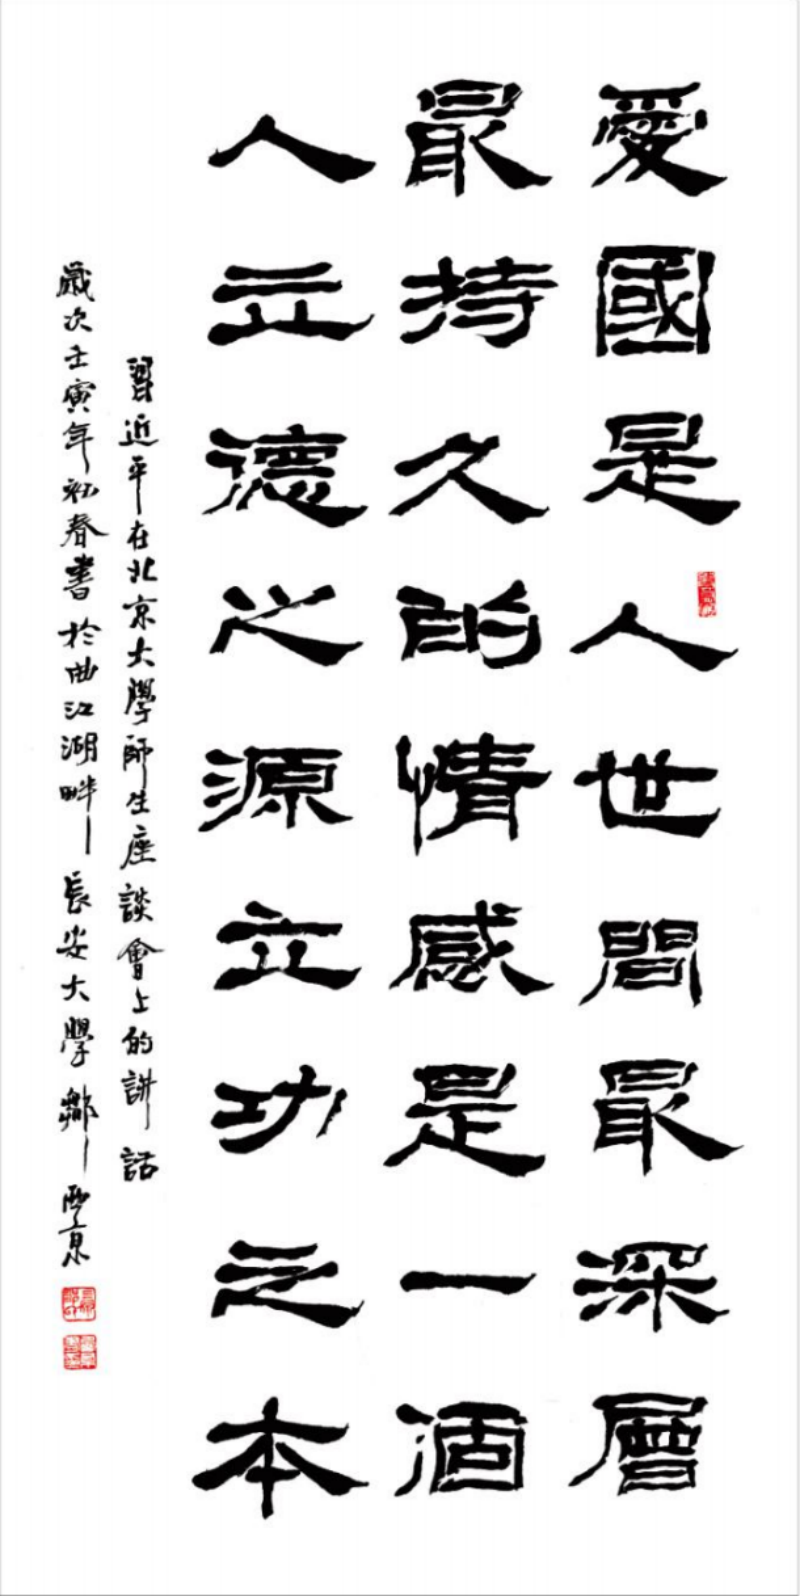 愛國是人世間最深層
最持久的情感是一個
人立德之源立功之本
習近平在北京大學師生座談會上的講話
歲次壬寅年初春書於曲江湖畔長安大學鄒